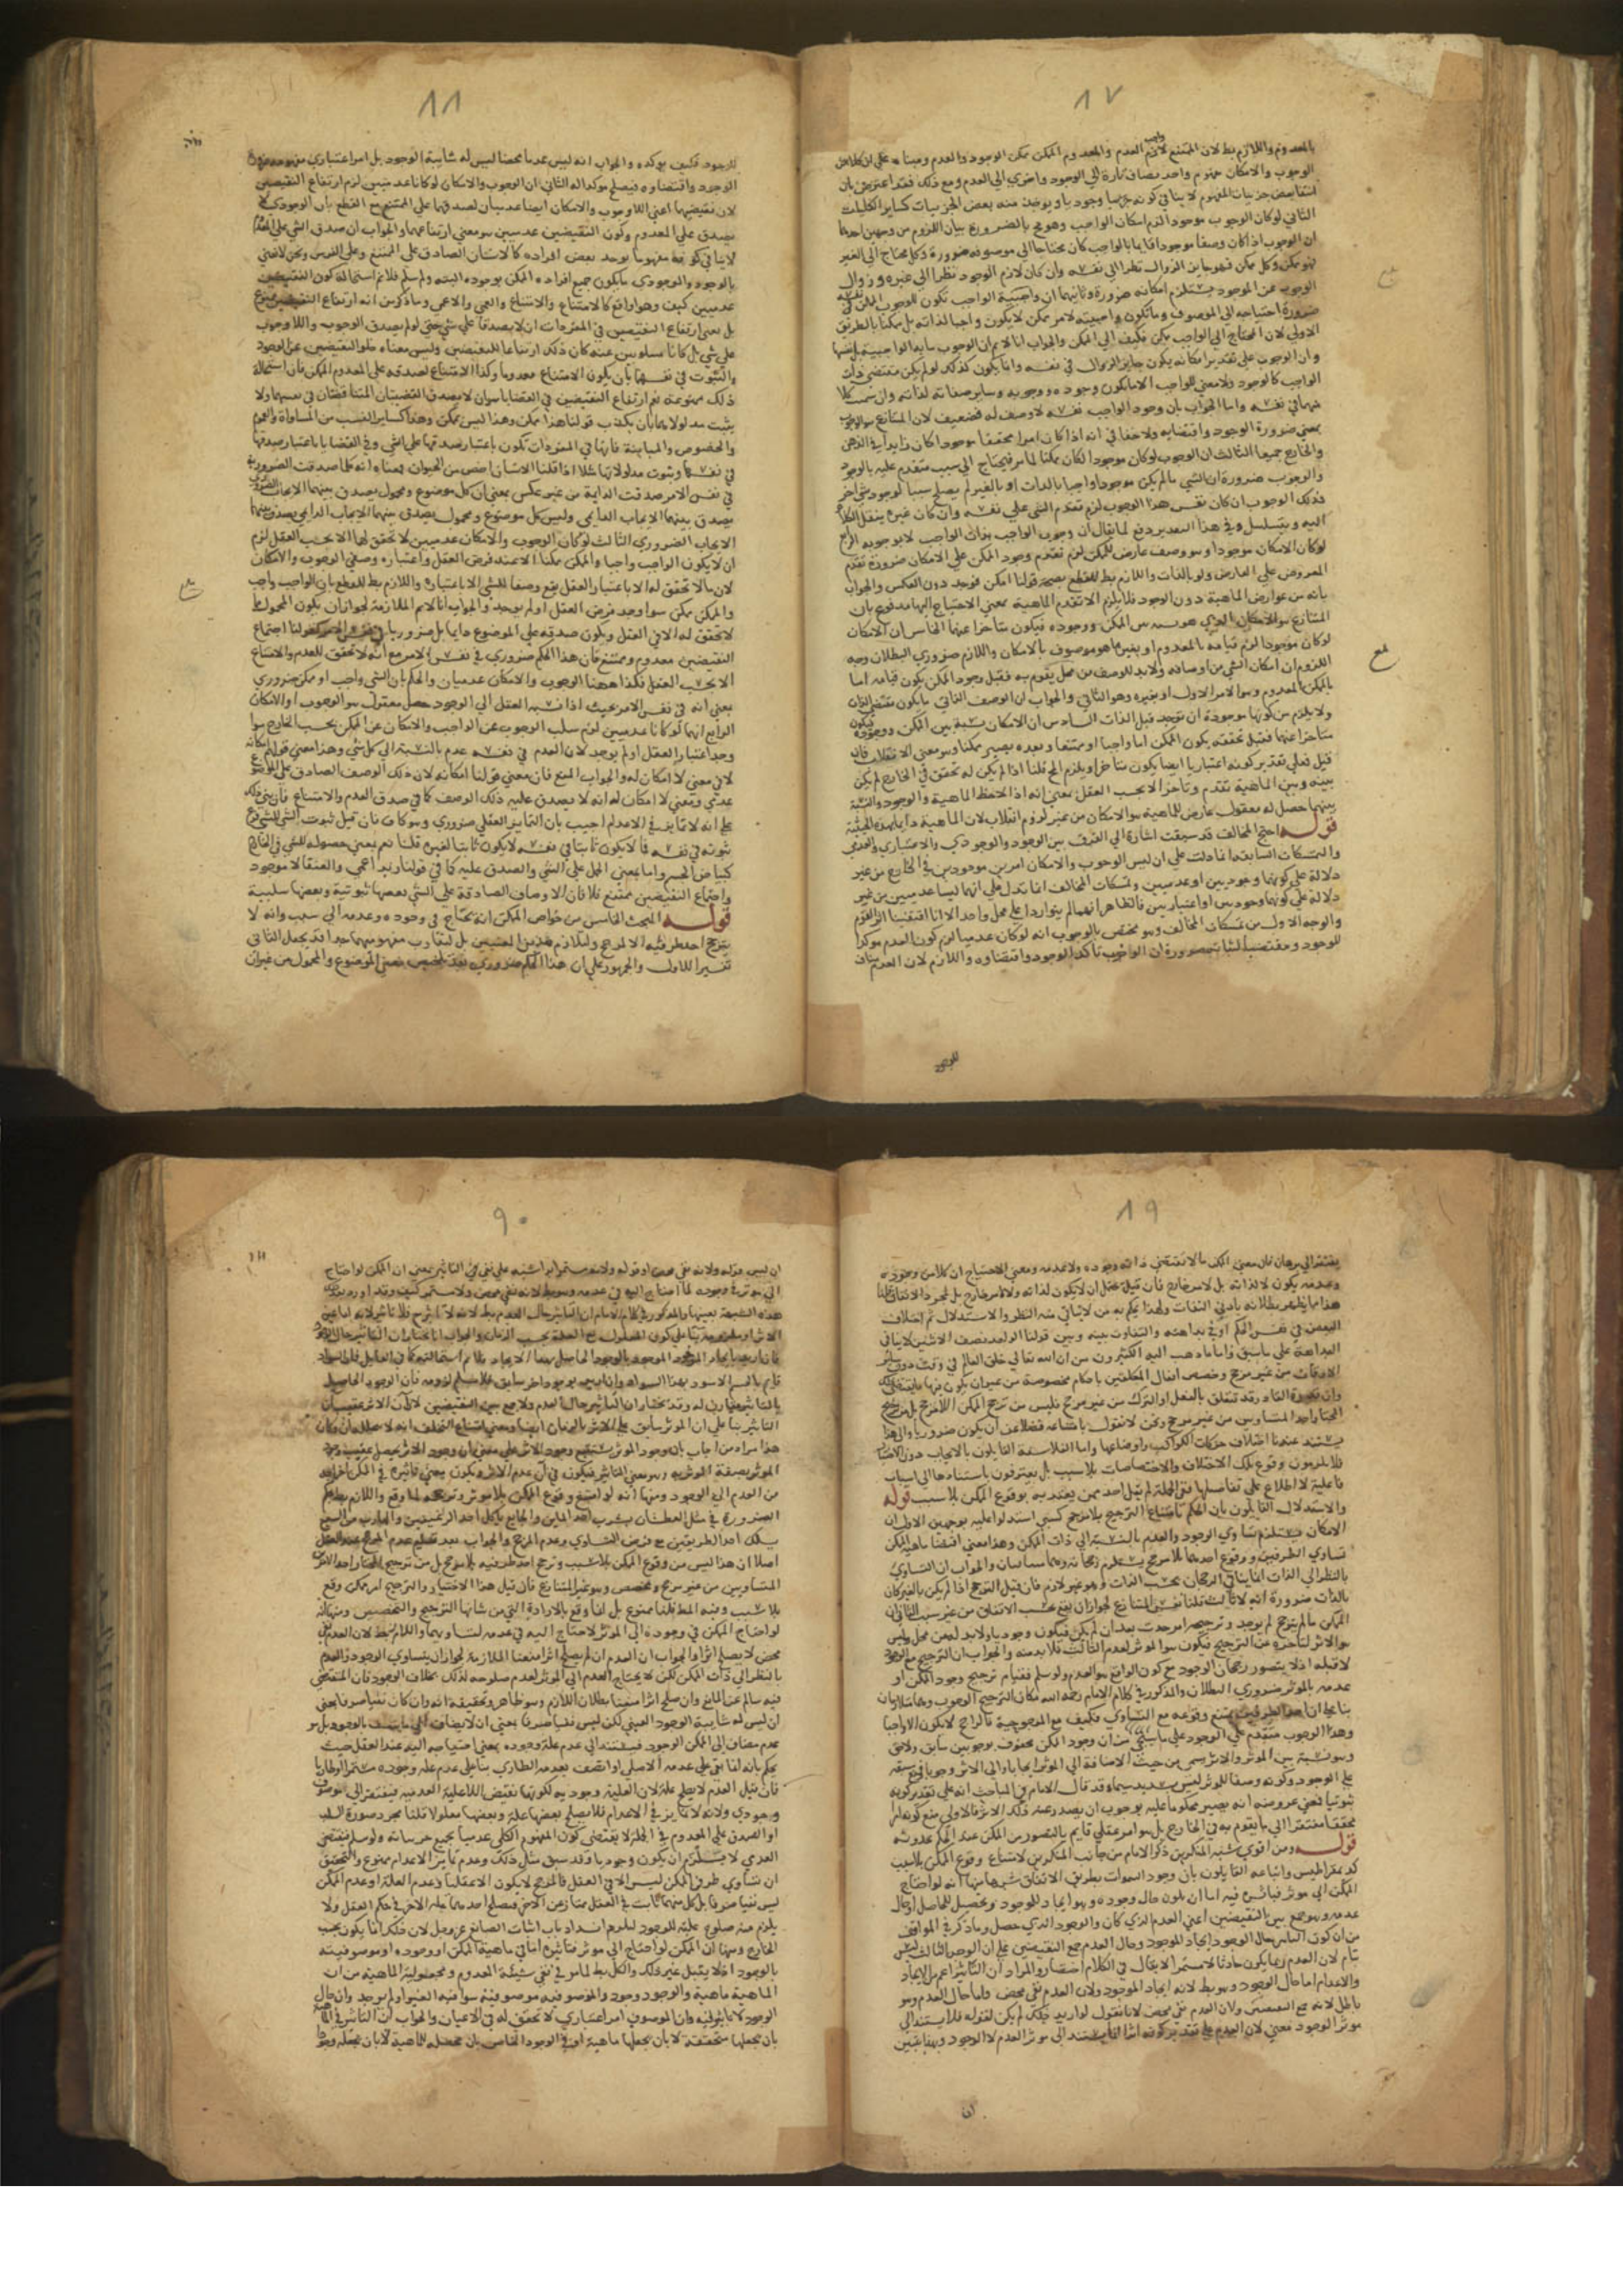 ٨٧
بالمعدوم واللازم بط لان الممتنع لازم العدم والمعدوم الممكن ممكن الوجود والعدم ومبناه على ان
الوجوب والامكان مفهوم واحد يضاف تارة الى الوجود واخرى الى العدم ومع ذلك فقد اعترض بان
الثاني لو كان الوجوب موجودا لزم امكان الواجب وهو مح بالضرورة بيان اللزوم من وجهين احدهما
ان الوجوب اذا كان وصفا موجودا قايما بالواجب كان محتاجا الى موصوفه ضرورة وكل محتاج الى الغير
فهو ممكن وكل ممكن فهو جايز الزوال نظرا الى نفسه وان كان لازم الوجود نظرا الى غيره وزوال
الوجوب عن الموجود يستلزم امكانه ضرورة وثانيهما ان واجبية الواجب تكون للوجوب الممكن في نفسه
ضرورة احتياجه الى الموصوف وما تكون واجبيته لامر ممكن لا يكون واجبا لذاته بل ممكنا بالطريق
الاولى لان المحتاج الى الواجب ممكن فكيف الى الممكن والجواب انا لانم ان الوجوب ما به الواجبية بل نفسها
وان الوجوب على تقدير امكانه يكون جايز الزوال في نفسه وانما يكون كذلك لو لم يكن مقتضى ذات
الواجب كالوجود ولا معنى للواجب الا ما يكون وجوده ووجوبه وساير صفاته لذاته وان سمت كلا
منها في نفسه واما الجواب بان وجود الواجب نفسه لا وصف له فضعيف لان المتنازع هو الوجوب
بمعنى ضرورة الوجود واقتضايه ولا خفا في انه اذا كان امرا محققا موجودا كان زايدا في الذهن
والخارج جميعا الثالث ان الوجوب لو كان موجودا لكان ممكنا لما مر فيحتاج الى سبب متقدم عليه بالوجود
والوجوب ضرورة ان الشي ما لم يكن موجودا واجبا بالذات او بالغير لم يصلح سببا لوجود شي اخر
فذلك الوجوب ان كان نفس هذا الوجوب لزم تقدم الشي على نفسه وان كان غيره ينقل الكلام
اليه ويتسلسل وفي هذا التقدير دفع لما يقال ان وجوب الواجب بذات الواجب لا بوجوبه الرابع
لو كان الامكان موجودا وهو وصف عارض للممكن لزم تقدم وجود الممكن على الامكان ضرورة تقدم
المعروض على العارض ولو بالذات واللازم بط للقطع بصحة قولنا امكن فوجد دون العكس والجواب
بانه من عوارض الماهية دون الوجود فلا يلزم الا تقدم الماهية بمعنى الاحتياج اليها مدفوع بان
المتنازع هو الامكان الذي هو نسبة بين الممكن ووجوده فيكون متاخرا عنهما الخامس ان الامكان
لو كان موجودا لزم قيامه بالمعدوم او بغير ما هو موصوف بالامكان واللازم ضروري البطلان وجه
اللزوم ان امكان الشي من اوصافه ولا بد للوصف من محل يقوم به فقبل وجود الممكن يكون قيامه اما
بالممكن المعدوم وهو الامر الاول او بغيره وهو الثاني والجواب ان الوصف الذاتي ما يكون مقتضى الذات
ولا يلزم من كونها موجودة ان توجد قبل الذات السادس ان الامكان نسبة بين الممكن ووجوده فيكون
متاخرا عنهما فقبل تحققه يكون الممكن اما واجبا او ممتنعا وبعده يصير ممكنا وهو معنى الانقلاب فان
قيل فعلى تقدير كونه اعتباريا ايضا يكون متاخرا ويلزم المح قلنا اذا لم يكن له تحقق في الخارج لم يكن
بينه وبين الماهية تقدم وتاخر الا بحسب العقل بمعنى انه اذا لاحظ الماهية والوجود والنسبة
بينهما حصل له معقول عارض للماهية هو الامكان من غير لزوم انقلاب لان الماهية دايما بهذه الحيثية
قوله احتج المخالف قد سبقت اشارة الى الفرق بين الوجود والوجودي والاعتباري والعدمي
والتمسكات السابقة انما دلت على ان ليس الوجوب والامكان امرين موجودين في الخارج من غير
دلالة على كونهما وجوديين او عدميين وتمسكات المخالف انما تدل على انهما ليسا عدميين من غير
دلالة على كونهما وجودين او اعتباريين فالظاهر انهما لم يتواردا على محل واحد الا انا اقتفينا اثر القوم
والوجه الاول من تمسكات المخالف وهو مختص بالوجوب انه لو كان عدميا لزم كون العدم موكدا
للوجود ومقتضيا لثباته ضرورة ان الواجب تاكد الوجود واقتضاوه واللازم لان العدم مناف
للوجود
٨٨
للوجود فكيف يوكده والجواب انه ليس عدما محضا ليس له شايبة الوجود بل امر اعتباري
الوجود واقتضاوه فيصلح موكدا له الثاني ان الوجوب والامكان لو كانا عدميين لزم ارتفاع النقيضين
لان نقيضيهما اعني اللا وجوب واللا امكان ايضا عدميان لصدقهما على الممتنع مع القطع بان الوجودي لا
يصدق على المعدوم وكون النقيضين عدميين هو معنى ارتفاعهما والجواب ان صدق الشي على المعدوم
لا ينافي كونه مفهوما يوجد بعض افراده كالانسان الصادق على الممتنع وعلى الفرس ونحن لا نعني
بالوجود والوجودي ما يكون جميع افراده الممكن بوجوده البتة ولو سلم فلانم استحالة كون النقيضين
عدميين كيف وهو واقع كالامتناع واللا امتناع والعمى واللا عمى وما ذكر من انه ارتفاع النقيضين ممنوع
بل معنى ارتفاع النقيضين في المفردات ان لا يصدقا على شي حتى لو لم يصدق الوجوب واللا وجوب
على شي بل كانا مسلوبين عنه كان ذلك ارتفاعا للنقيضين وليس معناه خلو النقيضين عن الوجود
والثبوت في نفسهما بان يكون الامتناع معدوما وكذا اللا امتناع لصدقه على المعدوم الممكن فان استحالة
ذلك ممنوعة نعم ارتفاع النقيضين في القضايا هو ان لا يصدق القضيتان المتناقضتان في نفسهما ولا
يثبت مدلولاهما بان يكذب قولنا هذا ممكن وهذا ليس بممكن وهذا كساير النسب من المساواة والعموم
والخصوص والمباينة فانها في المفردات تكون باعتبار صدقها على الشي وفي القضايا باعتبار صدقها
في نفسها وثبوت مدلولاتها مثلا اذا قلنا الانسان اخص من الحيوان فمعناه انه كلما صدقت الضرورية
في نفس الامر صدقت الدايمة من غير عكس بمعنى ان كل موضوع ومحمول يصدق بينهما الايجاب الضروري
يصدق بينهما الايجاب الدايمي وليس كل موضوع ومحمول يصدق بينهما الايجاب الدايمي يصدق بينهما
الايجاب الضروري الثالث لو كان الوجوب والامكان عدميين لا تحقق لهما الا بحسب العقل لزم
ان لا يكون الواجب واجبا والممكن ممكنا الا عند فرض العقل واعتباره وصفي الوجوب والامكان
لان ما لا تحقق له الا باعتبار العقل لم يقع وصفا للشي الا باعتباره واللازم بط للقطع بان الواجب واجب
والممكن ممكن سوا وجد فرض العقل او لم يوجد والجواب انا لانم الملازمة لجواز ان يكون المحمول مما
لا تحقق له الا في العقل ويكون صدقه على الموضوع دايما بل ضروريا كقولنا اجتماع
النقيضين معدوم وممتنع فان هذا الحكم ضروري في نفس الامر مع انه لا تحقق للعدم والامتناع
الا بحسب العقل فكذا ههنا الوجوب والامكان عدميان والحكم بان الشي واجب او ممكن ضروري
بمعنى انه في نفس الامر بحيث اذا نسبه العقل الى الوجود حصل معقول هو الوجوب او الامكان
الرابع انهما لو كانا عدميين لزم سلب الوجوب عن الواجب والامكان عن الممكن بحسب الخارج سوا
وجد اعتبار العقل او لم يوجد لان العدم في نفسه عدم بالنسبة الى كل شي وهذا معنى قولهم امكانه
لا في معنى لا امكان له والجواب المنع فان معنى قولنا امكانه لا ان ذلك الوصف الصادق على الموضوع
عدمي ومعنى لا امكان له انه لا يصدق عليه ذلك الوصف كما في صدق العدم والامتناع فان بني ذلك
على انه لا تمايز في الاعدام اجيب بان التمايز العقلي ضروري وهو كاف فان قيل ثبوت الشي للشي فرع
ثبوته في نفسه فما لا يكون ثابتا في نفسه لا يكون ثابتا لغيره قلنا نعم بمعنى حصوله للشي في الخارج
كبياض الجسم واما بمعنى الحمل على الشي والصدق عليه كما في قولنا زيد اعمى والعنقا لا موجود
واجتماع النقيضين ممتنع فلا فان الاوصاف الصادقة على الشي بعضها ثبوتية وبعضها سلبية
قوله المبحث الخامس من خواص الممكن انه يحتاج في وجوده وعدمه الى سبب وانه لا
يترجح احد طرفيه الا لمرجح ولتلازم هذين المعنيين بل لتقارب مفهوميهما جدا قد يجعل الثاني
تفسيرا للاول والجمهور على ان هذا الحكم ضروري بعد تلخيص معنى الموضوع والمحمول من غير ان
٨٩
يفتقر الى برهان فان معنى الممكن ما لا تقتضي ذاته وجوده ولا عدمه ومعنى الاحتياج ان كلا من وجوده
وعدمه يكون لا لذاته بل لامر خارج فان قيل يحتمل ان لا يكون لذاته ولا لامر خارج بل لمجرد الاتفاق قلنا
هذا مما يظهر بطلانه بادنى التفات ولهذا يحكم به من لا يتاتى منه النظر والاستدلال ثم اختلاف
البعض في نفس الحكم او في بداهته والتفاوت بينه وبين قولنا الواحد نصف الاثنين لا ينافي
البداهة على ما سبق واما ما ذهب اليه الكثيرون من ان الله تعالى خلق العالم في وقت دون ساير
الاوقات من غير مرجح وخصص افعال المكلفين باحكام مخصوصة من غير ان يكون فيها ما يقتضي ذلك
وان قدرة القادر قد تتعلق بالفعل او الترك من غير مرجح فليس من ترجح الممكن بلا مرجح بل من ترجيح
المختار احد المتساويين من غير مرجح ونحن لا نقول بامتناعه فضلا عن ان يكون ضروريا والى هذا
يستند عندنا اختلاف حركات الكواكب واوضاعها واما الفلاسفة القايلون بالايجاب دون الاختيار
فلا يلتزمون وقوع تلك الاختلاف والاختصاصات بلا سبب بل يعترفون باستنادها الى اسباب
فاعلية لا اطلاع على تفاصيلها ففي الجملة لم يقل احد ممن يعتد به بوقوع الممكن بلا سبب قوله
والاستدلال القايلون بان الحكم بامتناع الترجح بلا مرجح كسبي استدلوا عليه بوجهين الاول ان
الامكان يستلزم تساوي الوجود والعدم بالنسبة الى ذات الممكن وهذا معنى اقتضا ماهية الممكن
تساوي الطرفين ووقوع احدهما بلا مرجح يستلزم رجحانه وهما متنافيان والجواب ان التساوي
بالنظر الى الذات انما ينافي الرجحان بحسب الذات وهو غير لازم فان قيل الترجح اذا لم يكن بالغير كان
بالذات ضرورة انه لا ثالث قلنا نفس المتنازع لجواز ان يقع بحسب الاتفاق من غير سبب الثاني ان
الممكن ما لم يترجح لم يوجد وترجحه امر حدث بعد ان لم يكن فيكون وجوديا ولا بد له من محل وليس
هو الاثر لتاخره عن الترجيح فيكون هو الموثر لعدم الثالث فلا بد منه والجواب ان الترجح مع الوجود
لا قبله اذ لا يتصور رجحان الوجود مع كون الواقع هو العدم ولو سلم فقيام ترجيح وجود الممكن او
عدمه بالموثر ضروري البطلان والمذكور في كلام الامام رحمه الله مكان الترجيح الوجوب
بنا على ان احد الطرفين يمتنع وقوعه مع التساوي فكيف مع المرجوحية فالراجح لا يكون الا واجبا
وهذا الوجوب متقدم على الوجود على ما سيجي من ان وجود الممكن محفوف بوجوبين سابق ولاحق
وهو نسبة بين الموثر والاثر يسمى من حيث الاضافة الى الموثر ايجابا والى الاثر وجوبا فمنع سبقه
على الوجود وكونه وصفا للموثر ليس بسديد سيما وقد قال الامام في المباحث انه على تقدير كونه
ثبوتيا فمعنى عروضه انه يصير محكوما عليه بوجوب ان يصدر عنه ذلك الاثر فالاولى منع كونه امرا
محققا مفتقرا الى ما يقوم به في الخارج بل هو امر عقلي قايم بالتصور من الممكن عند الحكم بحدوثه
قوله ومن اقوى شبه المنكرين ذكر الامام من جانب المنكرين لامتناع وقوع الممكن بلا سبب
كديمقراطيس واتباعه القايلون بان وجود السموات بطريق الاتفاق شبها منها انه لو احتاج
الممكن الى موثر فتاثيره فيه اما ان يكون حال وجوده وهو ايجاد للموجود وتحصيل للحاصل او حال
عدمه وهو جمع بين النقيضين اعني العدم الذي كان والوجود الذي حصل وما ذكر في المواقف
من ان كون التاثير حال الوجود ايجاد الموجود وحال العدم جمع النقيضين على ان الوجه الثالث ليس
بتام لان العدم ربما يكون حادثا لا مستمرا لا يقال في الكلام اختصار والمراد ان التاثير اعم من الايجاد
والاعدام اما حال الوجود وهو بط لانه ايجاد الموجود ولان العدم نفي محض واما حال العدم وهو
باطل لانه جمع النقيضين ولان العدم نفي محض لانا نقول لو اريد ذلك لم يكن لقوله فلا يستند الى
موثر الوجود معنى لان العدم على تقدير كونه اثرا انما يستند الى موثر العدم لا الوجود وبهذا يتبين
ان
٩٠
ان ليس قوله ولانه نفي محض او قوله ولانه مستمر اشبه على نفي التاثير بمعنى ان الممكن لو احتاج
الى موثر في وجوده لما احتاج اليه في عدمه وهو بط لانه نفي محض ولا مستمر كيف وقد اورد
هذه الشبهة بعينها والمذكور في كلام الامام ان التاثير حال العدم بط لانه لا اثر ح فلا تاثير لانه اما عين
الاثر او ملزومه بنا على كون المعلول مع العلة بحسب الزمان والجواب انا نختار ان التاثير حال الوجود
فان اريد بايجاد الموجود الموجود بالوجود الحاصل بهذا الايجاد فلانم استحالته كما في القابل فان السواد
قايم بالجسم الاسود بهذا السواد وان اريد بوجود اخر سابق فلا نسلم لزومه فان الوجود الحاصل
بالتاثير مقارن له وقد نختار ان التاثير حال العدم ولا جمع بين النقيضين لان الاثر عقيب ان
التاثير بنا على ان الموثر سابق على الاثر بالزمان ايضا ومعنى امتناع التخلف انه لا
هذا مراد من اجاب بان وجود الموثر يستتبع وجود الاثر على معنى ان وجود الاثر يحصل عقيب
الموثر بصفة الموثرية وهو معنى التاثير فيكون في ان عدم الاثر ويكون يعني تاثيره في الممكن
من العدم الى الوجود ومنها انه لو امتنع وقوع الممكن بلا موثر وترجحه لما وقع واللازم بط بحكم
الضرورة في مثل العطشان يشرب احد المائين والجايع ياكل احد الرغيفين والهارب من السبع
يسلك احد الطريقين مع فرض التساوي وعدم المرجح والجواب بعد تسليم عدم المرجح عند العقل
اصلا ان هذا ليس من وقوع الممكن بلا سبب وترجح احد طرفيه بلا مرجح بل من ترجيح المختار احد الامرين
المتساويين من غير مرجح ومخصص وهو غير المتنازع فان قيل هذا الاختيار والترجيح امر ممكن وقع
بلا سبب وفيه المط قلنا ممنوع بل انما وقع بالارادة التي من شانها الترجيح والتخصيص ومنها انه
لو احتاج الممكن في وجوده الى الموثر لاحتاج اليه في عدمه لتساويهما واللازم بط لان العدم نفي
محض لا يصلح اثرا والجواب ان العدم ان لم يصلح اثرا منعنا الملازمة لجواز ان يتساوي الوجود والعدم
بالنظر الى ذات الممكن لكن لا يحتاج العدم الى الموثر لعدم صلوحه لذلك بخلاف الوجود فان المقتضي
فيه سالم عن المانع وان صلح اثرا منعنا بطلان اللازم وهو ظاهر وتحقيقه انه وان كان نفيا صرفا بمعنى
ان ليس له شايبة الوجود العيني لكن ليس نفيا صرفا بمعنى ان لا يضاف الى ما يتصف بالوجود بل هو
عدم مضاف الى الممكن الوجود فيستند الى عدم علة وجوده بمعنى احتياجه اليه عند العقل حيث
يحكم بانه انما بقي على عدمه الاصلي او اتصف بعدمه الطاري بنا على عدم علة وجوده مستمرا او طاريا
فان قيل العدم لا يصلح علة لان العلية وجودية لكونها نقيض اللا علية العدمية فيفتقر الى موصوف
وجودي ولانه لا تمايز في الاعدام فلا يصلح بعضها علة وبعضها معلولا قلنا مجرد صورة السلب
او الصدق على المعدوم في الجملة لا يقتضي كون المفهوم الكلي عدميا بجميع جزياته ولو سلم فنقيض
العدمي لا يستلزم ان يكون وجوديا وقد سبق مثل ذلك وعدم تمايز الاعدام ممنوع والتحقيق
ان تساوي طرفي الممكن ليس الا في العقل فالمرجح لا يكون الا عقليا وعدم العلة او عدم الممكن
ليس نفيا صرفا بل كل منهما ثابت في العقل ممتاز عن الاخر فيصلح احدهما علة للاخر في حكم العقل ولا
يلزم منه صلوح عليته للوجود ليلزم انسداد باب اثبات الصانع عز وجل لان ذلك انما يكون بحسب
الخارج ومنها ان الممكن لو احتاج الى موثر فتاثيره اما في ماهية الممكن او وجوده او موصوفيته
بالوجود اذ لا يعقل غير ذلك والكل بط لما مر في نفي شيئية المعدوم ومجعولية الماهية من ان
الماهية ماهية والوجود وجود والموصوفية موصوفية سوا فيه الغير او لم يوجد وان حال
الوجود لا تاثير فيه وان الموصوف امر اعتباري لا تحقق له في الاعيان والجواب ان التاثير في الماهية
بان يجعلها متحققة لا بان يجعلها ماهية او في الوجود الخاص بان يحصله للماهية لا بان يجعله وجودا